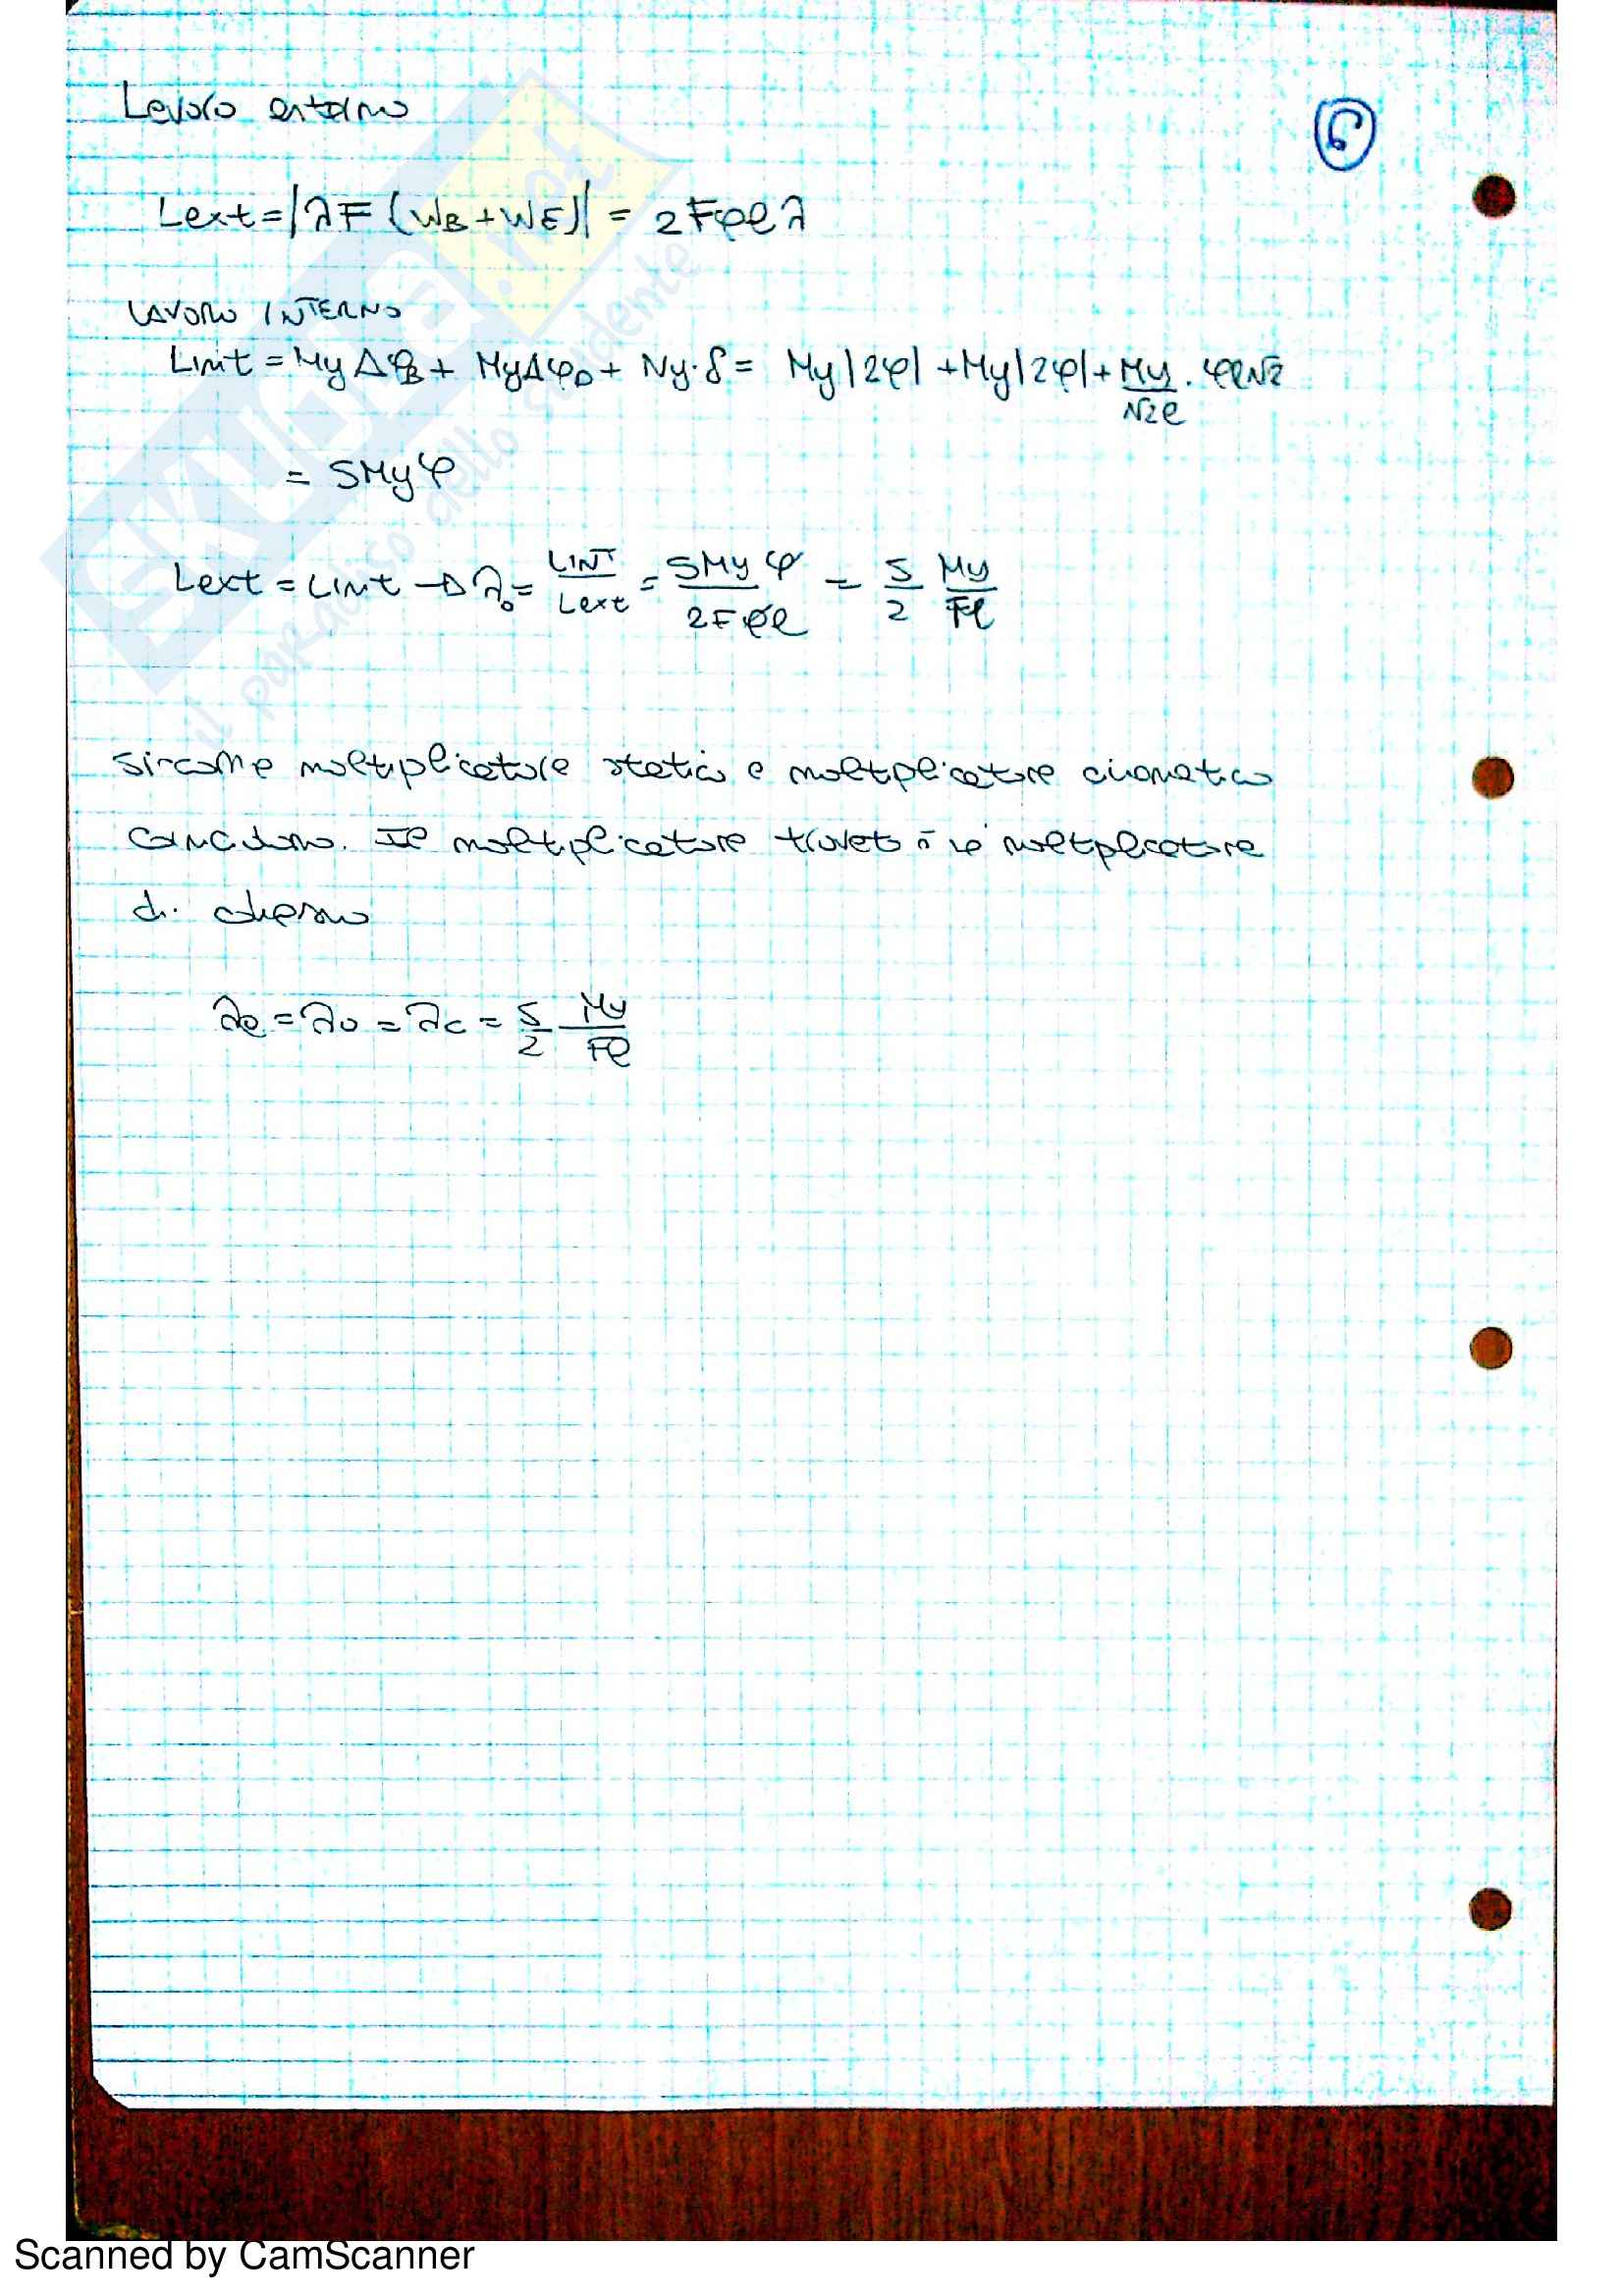 Lavoro esterno
6
Lext = |λF (WB + WE)| = 2Fφℓλ
LAVORO INTERNO
Lint = My ΔφB + My ΔφD + Ny·δ = My|2φ| + My|2φ| + My/√2ℓ · φℓ√2
= 5Myφ
Lext = Lint → λ0 = LINT/Lext = 5Myφ/2Fφℓ = 5/2 My/Fℓ
siccome moltiplicatore statico e moltiplicatore cinematico
coincidono. Il moltiplicatore trovato è il moltiplicatore
di collasso
λe = λ0 = λc = 5/2 My/Fℓ
SKUOLA.net
il paradiso dello studente
Scanned by CamScanner